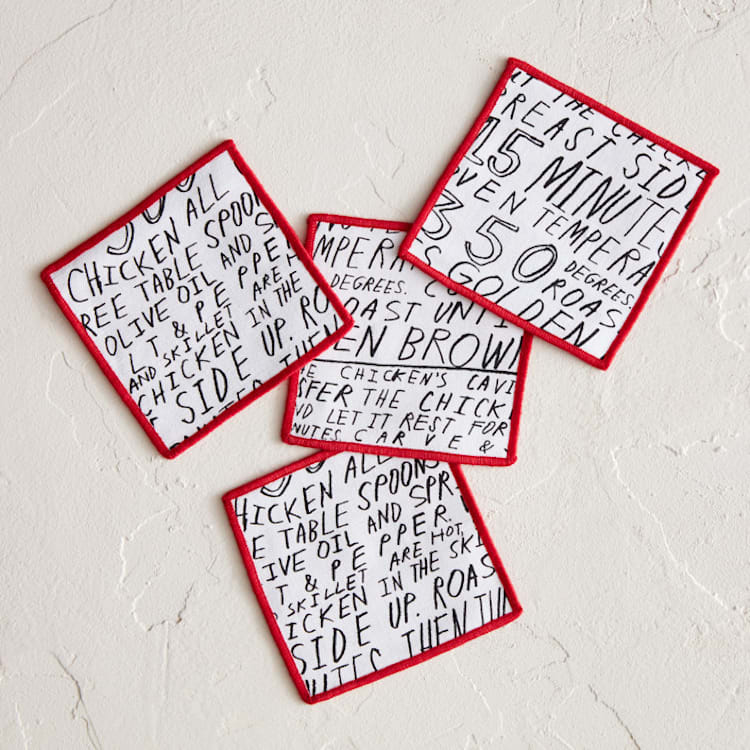 CHICKEN ALL
REE TABLE SPOON
OLIVE OIL AND S
LT & PE PPER
AND SKILLET ARE
CHICKEN IN THE
E SIDE UP. RO
THEN
THE CHICKE
REAST SID
15 MINUTE
VEN TEMPERA
350 DEGREES.
ROAS
GOLDEN
MPERA
DEGREES. C
OAST UNTI
EN BROWN
E CHICKEN'S CAVI
SFER THE CHICK
ND LET IT REST FOR
NUTES. CARVE &
HICKEN ALL
E TABLE SPOON
IVE OIL AND SPR
T & PE PPER.
SKILLET ARE HOT,
ICKEN IN THE SKI
SIDE UP. ROAS
UTES THEN TU